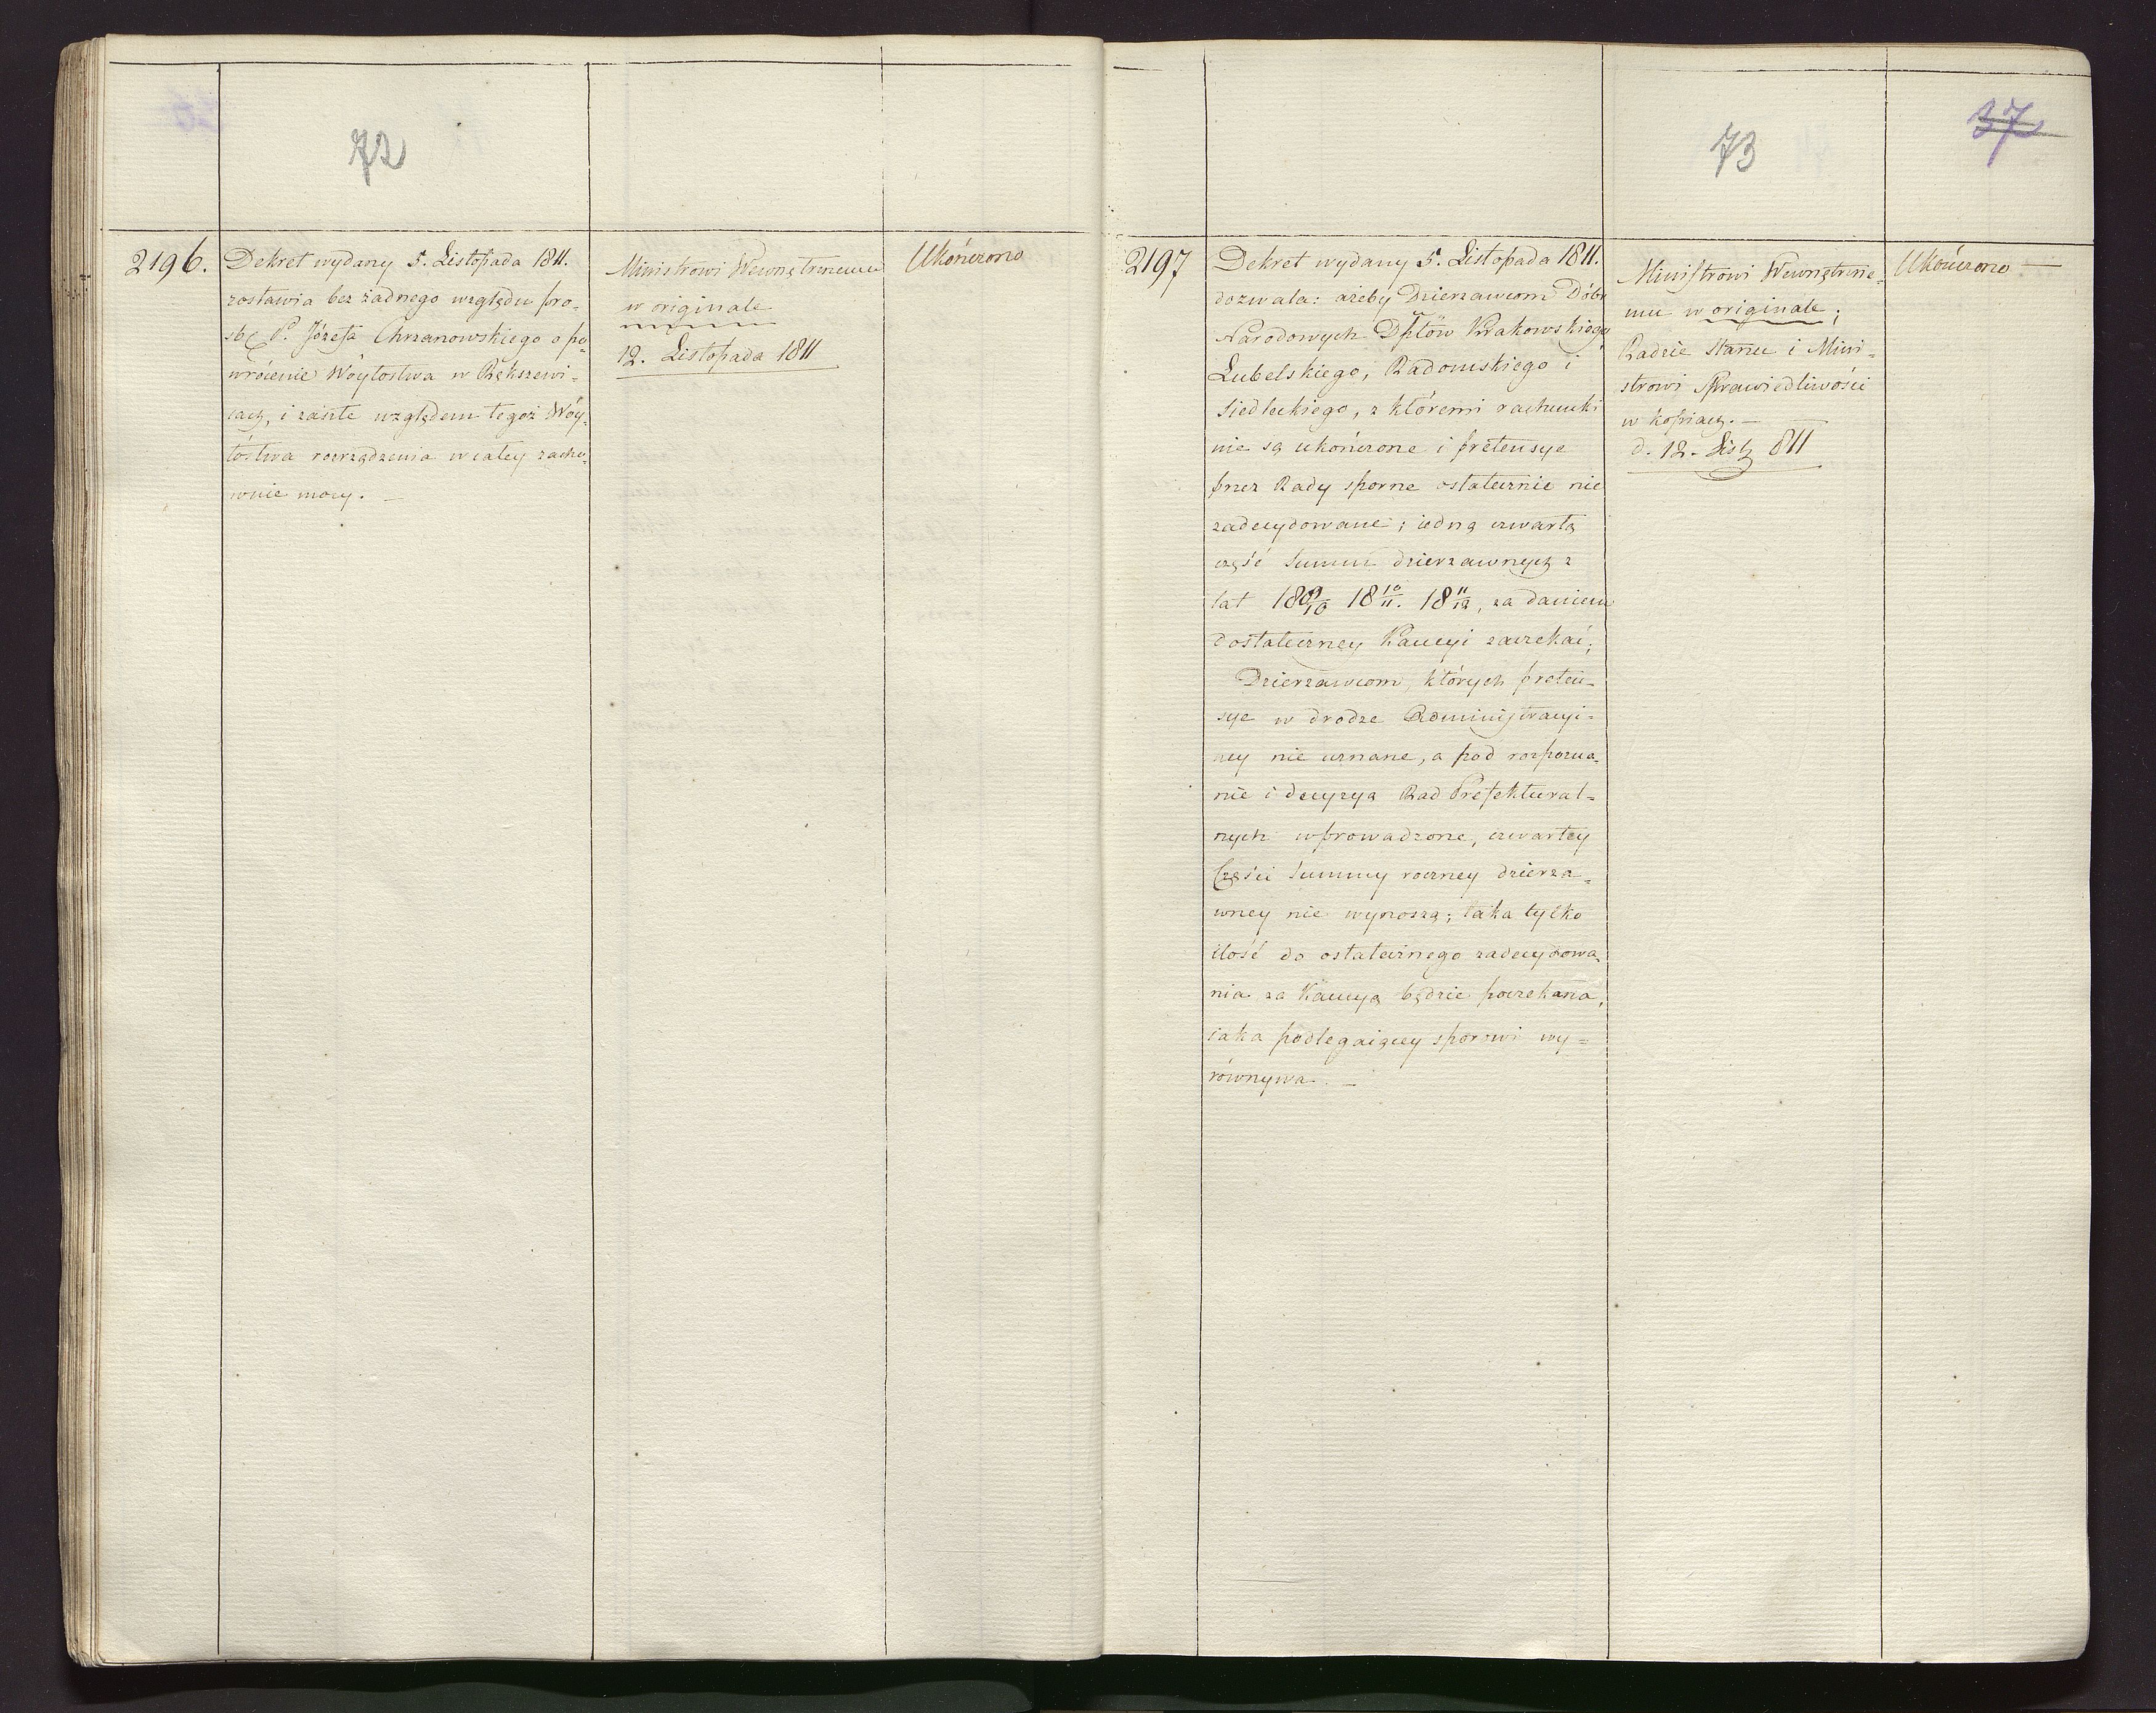 72
2196.
Dekret wydany 5. Listopada 1811.
zostawia bez żadnego względu pro-
śbę P. Józefa Chrzanowskiego o po-
wrócenie Wóytostwa w Rększewi-
cach, i zaszłe względem tegoż Wóy-
tostwa rozrządzenia w całey zacho-
wuie mocy. —
Ministrowi Wewnętrznemu
w originale
12. Listopada 1811
Ukończono
73
37
2197
Dekret wydany 5. Listopada 1811.
dozwala: ażeby Dzierzawcom Dóbr
Narodowych Dptów Krakowskiego
Lubelskiego, Radomskiego i
Siedleckiego, z któremi rachunki
nie są ukończone i pretensye
przez Rady sporne ostatecznie nie
zadecydowane; iedną czwartą
część Summ dzierzawnych z
lat 1809/10 18 10/11. 18 11/12, za daniem
dostateczney Kaucyi zaczekać;
Dzierzawcom, których preten-
sye w drodze Administracyi-
ney nie uznane, a pod rozpozna-
nie i decyzyą Rad Prefektural-
nych wprowadzone, czwartey
Części Summy roczney dzierza-
wney nie wynoszą; taka tylko
ilość do ostatecznego zadecydowa-
nia za Kaucyą będzie poczekana,
iaka podlegaiącey sporowi wy-
równywa. —
Ministrowi Wewnętrzne-
mu w originale;
Radzie Stanu i Mini-
strowi Sprawiedliwości
w kopiach. —
d. 12. Listp 811
Ukończono —